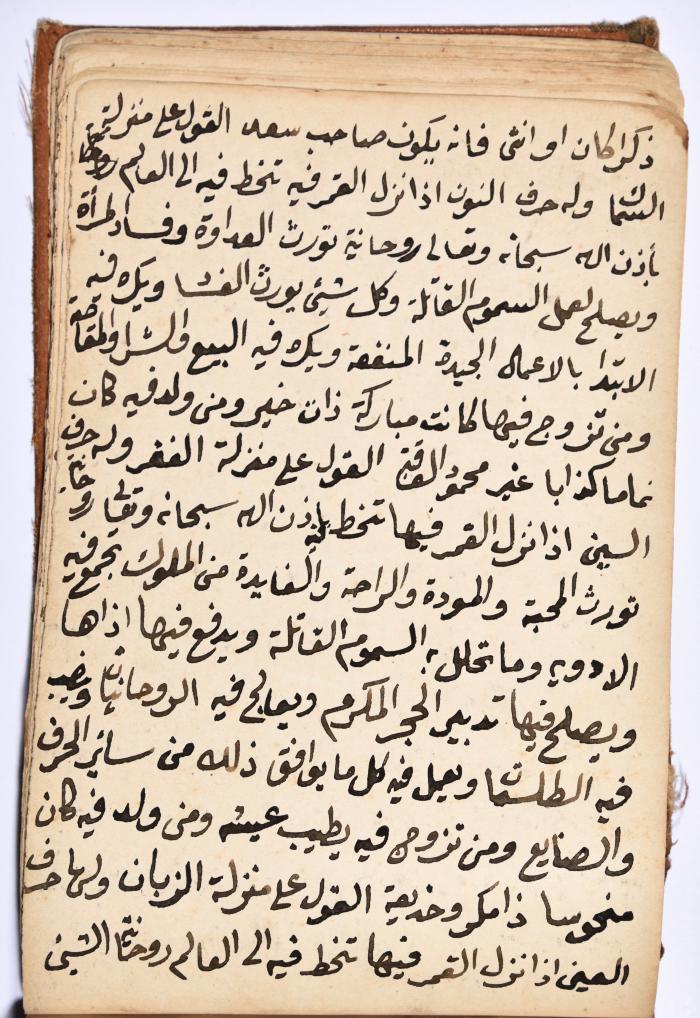 ذكرا كان او انثى فانه يكون صاحب سعد القول على منزلة
السماك وله حرف النون اذا نزل القمر فيه تنحط فيه الى العالم روحانية
بأذن الله سبحانه وتعالى روحانية تورث العداوة وفساد المرأة
ويصلح لعمل السموم القاتلة وكل شيئ يورث الفساد ويكره فيه
الابتدا بالاعمال الجيدة المنفعة ويكره فيه البيع والشرا والمقايضة
ومن تزوج فيها كانت مباركة ذات خير ومن ولد فيه كان
نماما كذابا غير محمود العاقبة القول على منزلة الغفر وله حرف
السين اذا نزل القمر فيها تنحط فيه بإذن الله سبحانه وتعالى روحانية
تورث المحبة والمودة والراحة والفايدة من الملوك تجمع فيه
الادويه وما تحلل به السموم القاتلة ويدفع فيها اذاها
ويصلح فيها تدبير الحجر المكرم ويعالج فيه الروحانيات وينصب
فيه الطلسمات ويعمل فيه كل ما يوافق ذلك من ساير الحرف
والصنايع ومن تزوج فيه يطيب عيشه ومن ولد فيه كان
منحوسا ذا مكر وخديعة القول على منزلة الزبان ولها حرف
العين اذا نزل القمر فيها تنحط فيه الى العالم روحانية الشيئ